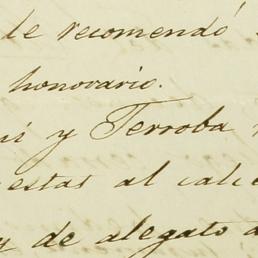 le recomendó
honorario.
y Terroba
estas al calce
y de alegato